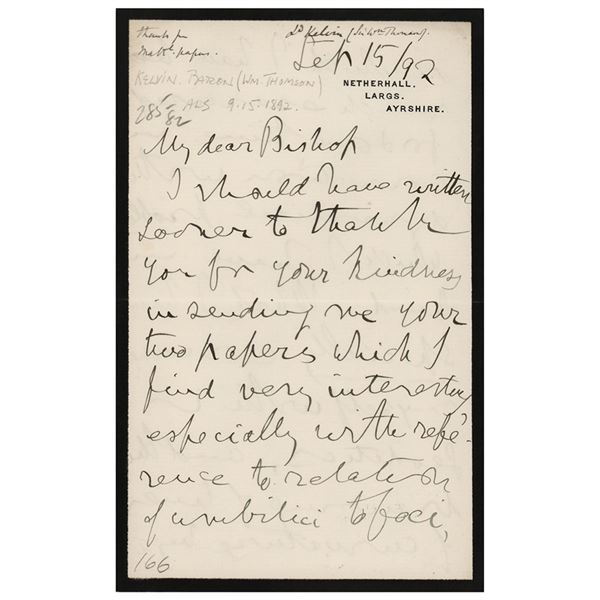 thanks for
Math. papers.
Ld Kelvin (Sir Wm Thomson).
Sep 15/92
KELVIN. BARON (WM. THOMSON)
285-
82
ALS 9.15.1892.
NETHERHALL.
LARGS.
AYRSHIRE.
My dear Bishop
I should have written
sooner to thank
you for your kindness
in sending me your
two papers which I
find very interesting
especially with refe-
rence to relation
of umbilici to foci,
166